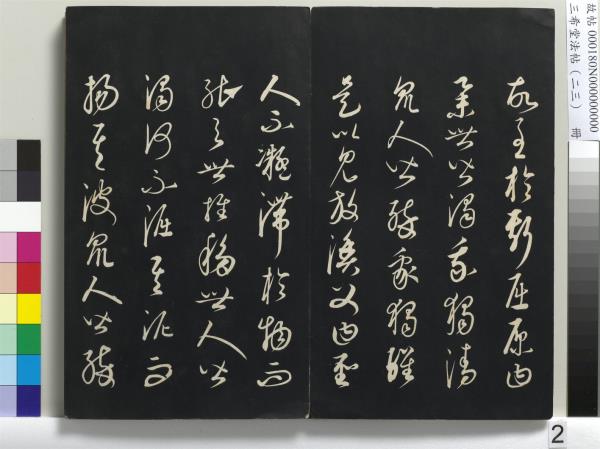 故帖 000180N000000000
三希堂法帖（二三） 冊
故至於斯屈原曰
舉世皆濁我獨清
眾人皆醉我獨醒
是以見放漁父曰聖
人不凝滯於物而
能与世推移世人皆
濁何不淈其泥而
揚其波眾人皆醉
2